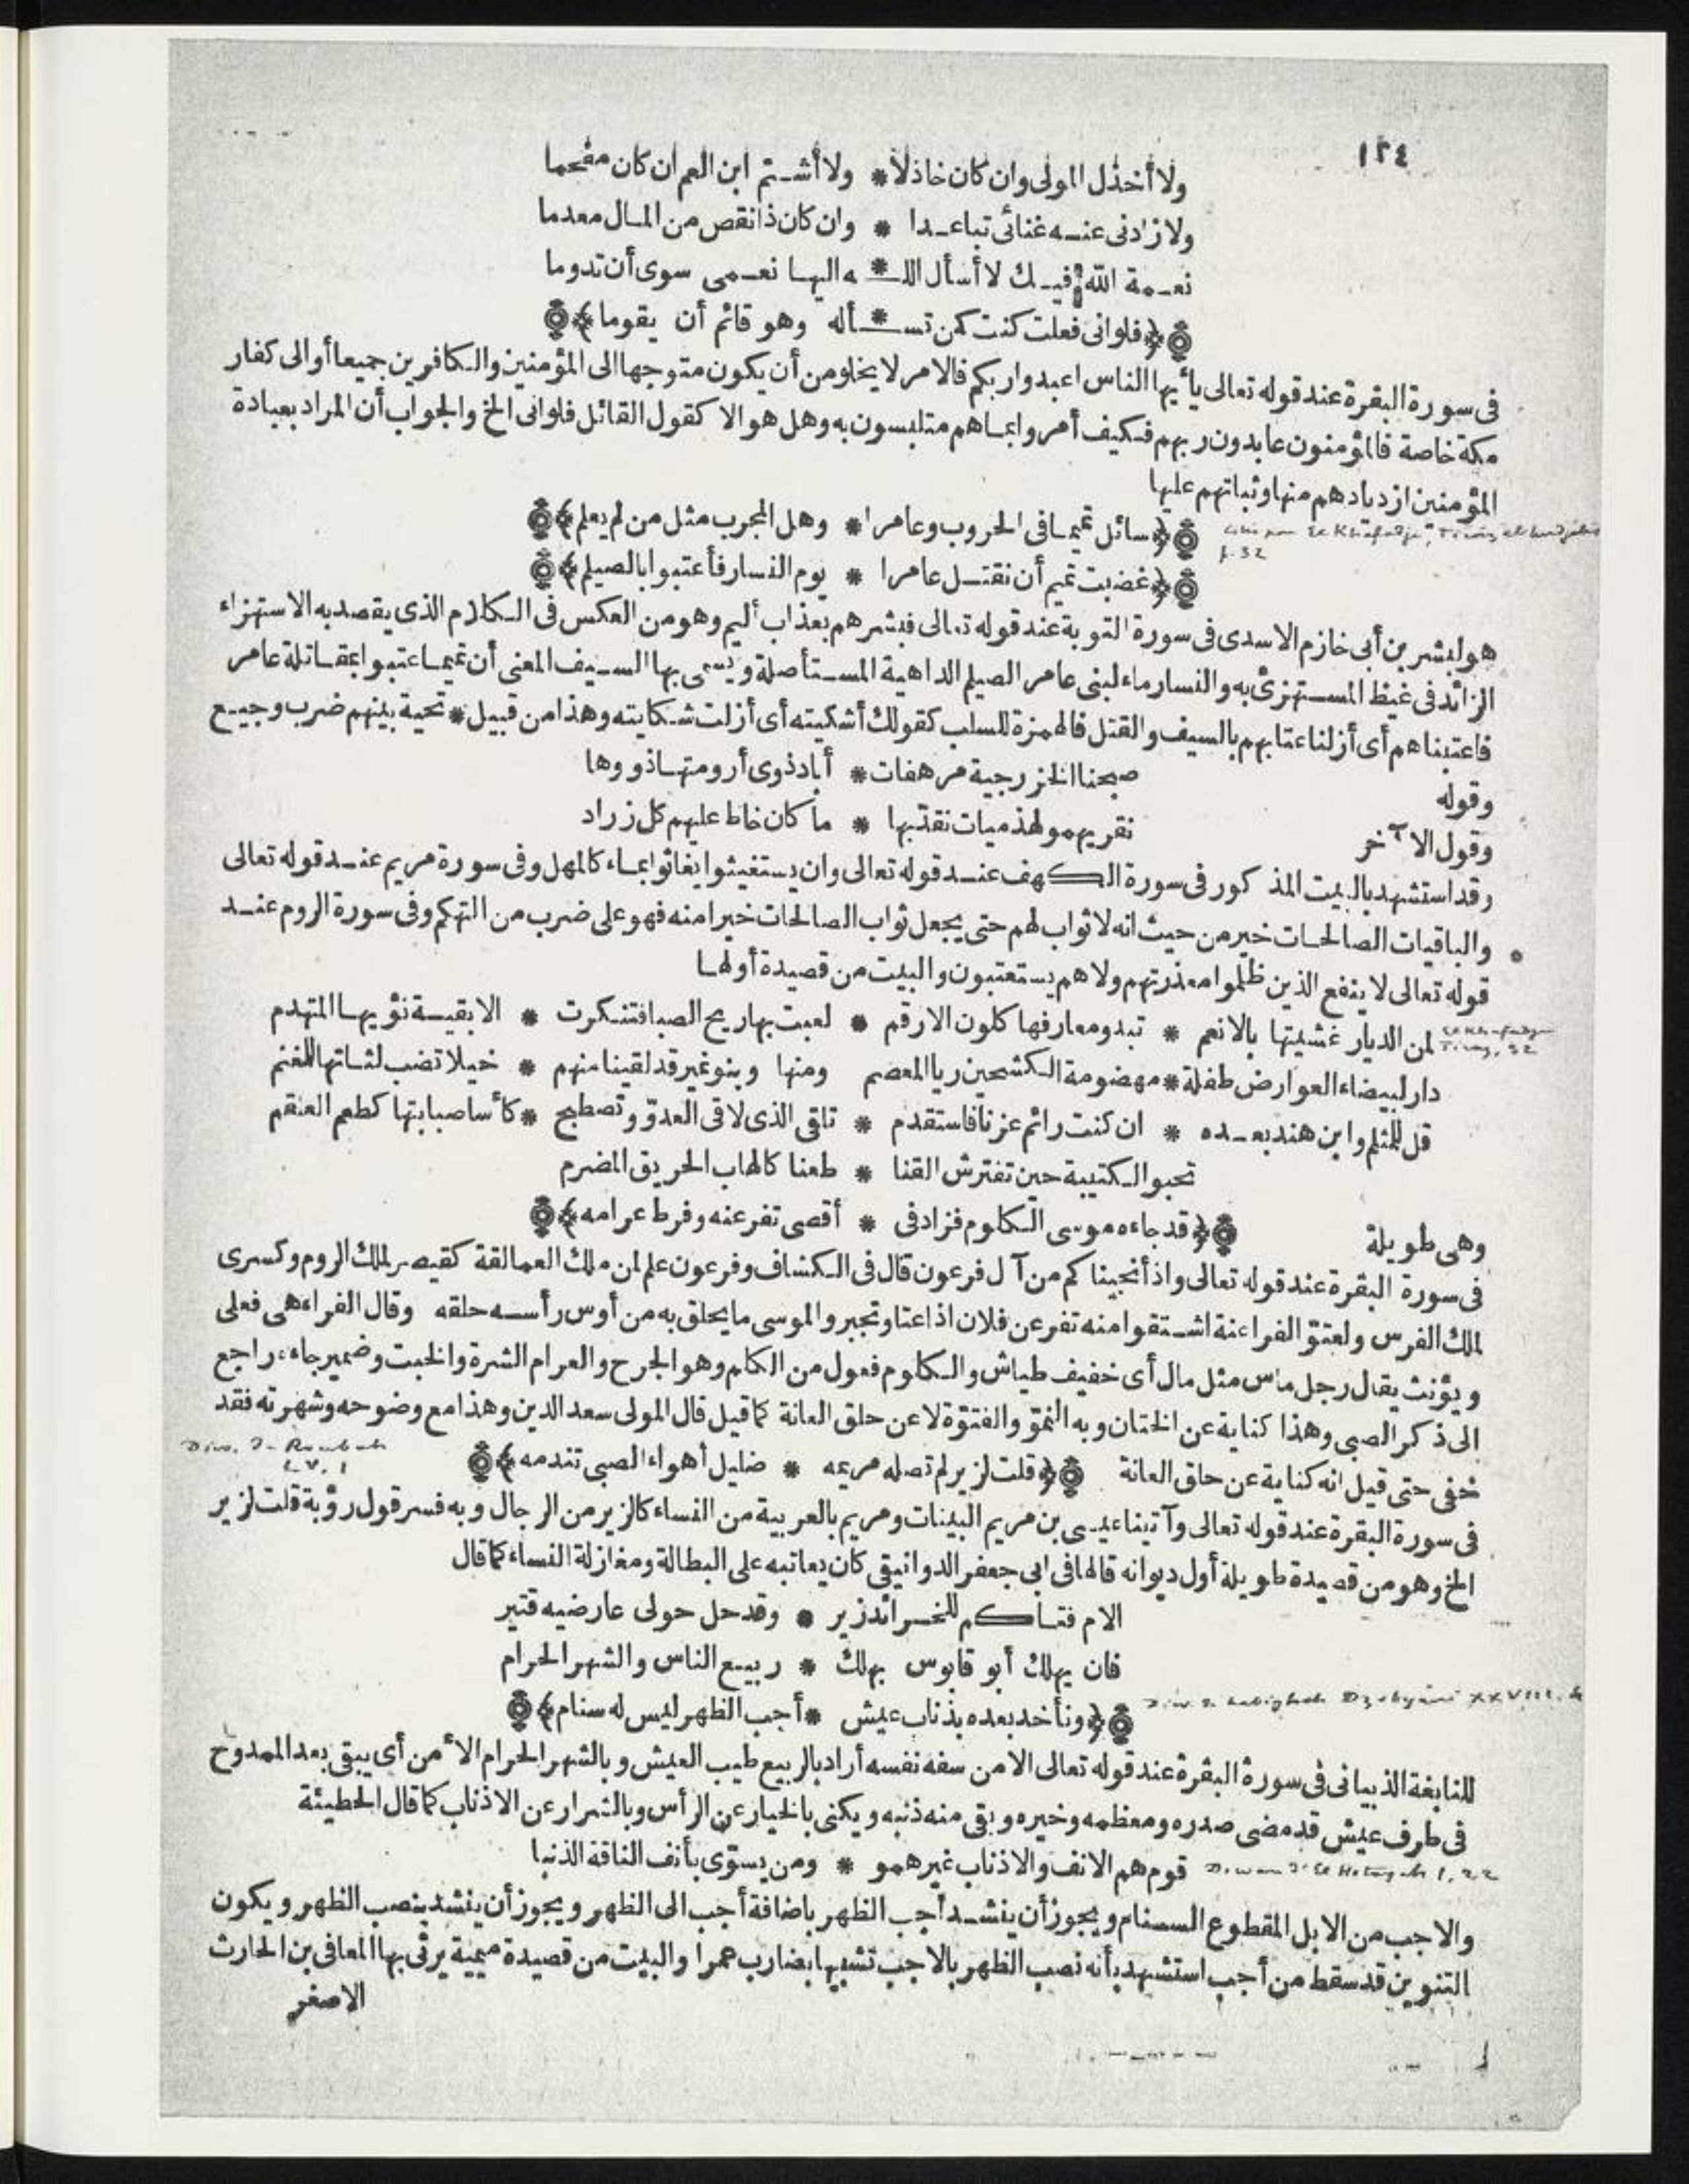 ١٢٤
ولا أخذل المولى وان كان خاذلا * ولا أشتم ابن العم ان كان مفحما
ولا زادنى عنه غنائى تباعدا * وان كان ذا نقص من المال معدما
نعمة الله فيك لا أسأل اللـ * ـه اليها نعمى سوى أن تدوما
﴿فلوانى فعلت كنت كمن تسـ * ـأله وهو قائم أن يقوما﴾
فى سورة البقرة عند قوله تعالى يا أيها الناس اعبدوا ربكم فالامر لا يخلو من أن يكون متوجها الى المؤمنين والكافرين جميعا أو الى كفار
مكة خاصة فالمؤمنون عابدون ربهم فكيف أمروا بما هم متلبسون به وهل هو الا كقول القائل فلوانى الخ والجواب أن المراد بعبادة
المؤمنين ازديادهم منها وثباتهم عليها
﴿سائل تميما فى الحروب وعامرا * وهل المجرب مثل من لم يعلم﴾
f. 32
﴿غضبت تميم أن نقتل عامرا * يوم النسار فأعتبوا بالصيلم﴾
هو لبشر بن أبى خازم الاسدى فى سورة التوبة عند قوله تعالى فبشرهم بعذاب أليم وهو من العكس فى الكلام الذى يقصد به الاستهزاء
الزائد فى غيظ المستهزئ به والنسار ماء لبنى عامر الصيلم الداهية المستأصلة ويسمى بها السيف المعنى أن تميما عتبوا بمقاتلة عامر
فاعتبناهم أى أزلنا عتابهم بالسيف والقتل فالهمزة للسلب كقولك أشكيته أى أزلت شكايته وهذا من قبيل * تحية بينهم ضرب وجيع
وقوله صبحنا الخزرجية مرهفات * أباد ذوى أرومتها ذووها
وقول الآخر نقريهمو لهذميات نقدبها * ما كان خاط عليهم كل زراد
وقد استشهد بالبيت المذكور فى سورة الكهف عند قوله تعالى وان يستغيثوا يغاثوا بماء كالمهل وفى سورة مريم عند قوله تعالى
والباقيات الصالحات خير من حيث انه لا ثواب لهم حتى يجعل ثواب الصالحات خيرا منه فهو على ضرب من التهكم وفى سورة الروم عند
قوله تعالى لا ينفع الذين ظلموا معذرتهم ولا هم يستعتبون والبيت من قصيدة أولها
لمن الديار غشيتها بالانعم * تبدو معارفها كلون الارقم * لعبت بها ريح الصبا فتنكرت * الا بقية نؤيها المتهدم
دار لبيضاء العوارض طفلة * مهضومة الكشحين ريا المعصم ومنها وبنو نمير قد لقينا منهم * خيلا تضب لثاتها للمغنم
قل للمثلم وابن هند بعده * ان كنت رائم عزنا فاستقدم * تلقى الذى لاقى العدوّ وتصطبح * كأسا صبابتها كطعم العلقم
تحبو الكتيبة حين تفترش القنا * طعنا كالهاب الحريق المضرم
وهى طويلة ﴿قد جاءه موسى الكلوم فزاد فى * أقصى تفرعنه وفرط عرامه﴾
فى سورة البقرة عند قوله تعالى واذ أنجيناكم من آل فرعون قال فى الكشاف وفرعون علم لمن ملك العمالقة كقيصر لملك الروم وكسرى
لملك الفرس ولعتوّ الفراعنة اشتقوا منه تفرعن فلان اذا عتا وتجبر والموسى ما يحلق به من أوس رأسه حلقه وقال الفراء هى فعلى
ويؤنث يقال رجل ماس مثل مال أى خفيف طياش والكلوم فعول من الكلم وهو الجرح والعرام الشرة والخبث وضمير جاءه راجع
الى ذكر الصبى وهذا كناية عن الختان وبه النموّ والفتوّة لا عن حلق العانة كما قيل قال المولى سعد الدين وهذا مع وضوحه وشهرته فقد
خفى حتى قيل انه كناية عن حلق العانة ﴿قلت لزير لم تصله مريمه * ضليل أهواء الصبى تندمه﴾
LV. 1
فى سورة البقرة عند قوله تعالى وآتينا عيسى بن مريم البينات ومريم بالعربية من النساء كالزير من الرجال وبه فسر قول رؤبة قلت لزير
الخ وهو من قصيدة طويلة أول ديوانه قالها فى ابى جعفر الدوانيقى كان يعاتبه على البطالة ومغازلة النساء كما قال
الام فتاكم للخرائد زير * وقد حل حولى عارضيه قتير
فان يهلك أبو قابوس يهلك * ربيع الناس والشهر الحرام
﴿ونأخذ بعده بذناب عيش * أجب الظهر ليس له سنام﴾
للنابغة الذبيانى فى سورة البقرة عند قوله تعالى الا من سفه نفسه أراد بالربيع طيب العيش وبالشهر الحرام الأمن أى يبقى بعد الممدوح
فى طرف عيش قد مضى صدره ومعظمه وخيره وبقى منه ذنبه ويكنى بالخيار عن الرأس وبالشرار عن الاذناب كما قال الحطيئة
قوم هم الانف والاذناب غيرهمو * ومن يسوّى بأنف الناقة الذنبا
والاجب من الابل المقطوع السنام ويجوز أن ينشد أجب الظهر باضافة أجب الى الظهر ويجوز أن ينشد بنصب الظهر ويكون
التنوين قد سقط من أجب استشهد بأنه نصب الظهر بالاجب تشبيها بضارب عمرا والبيت من قصيدة ميمية يرثى بها المعافى بن الحارث
الاصغر